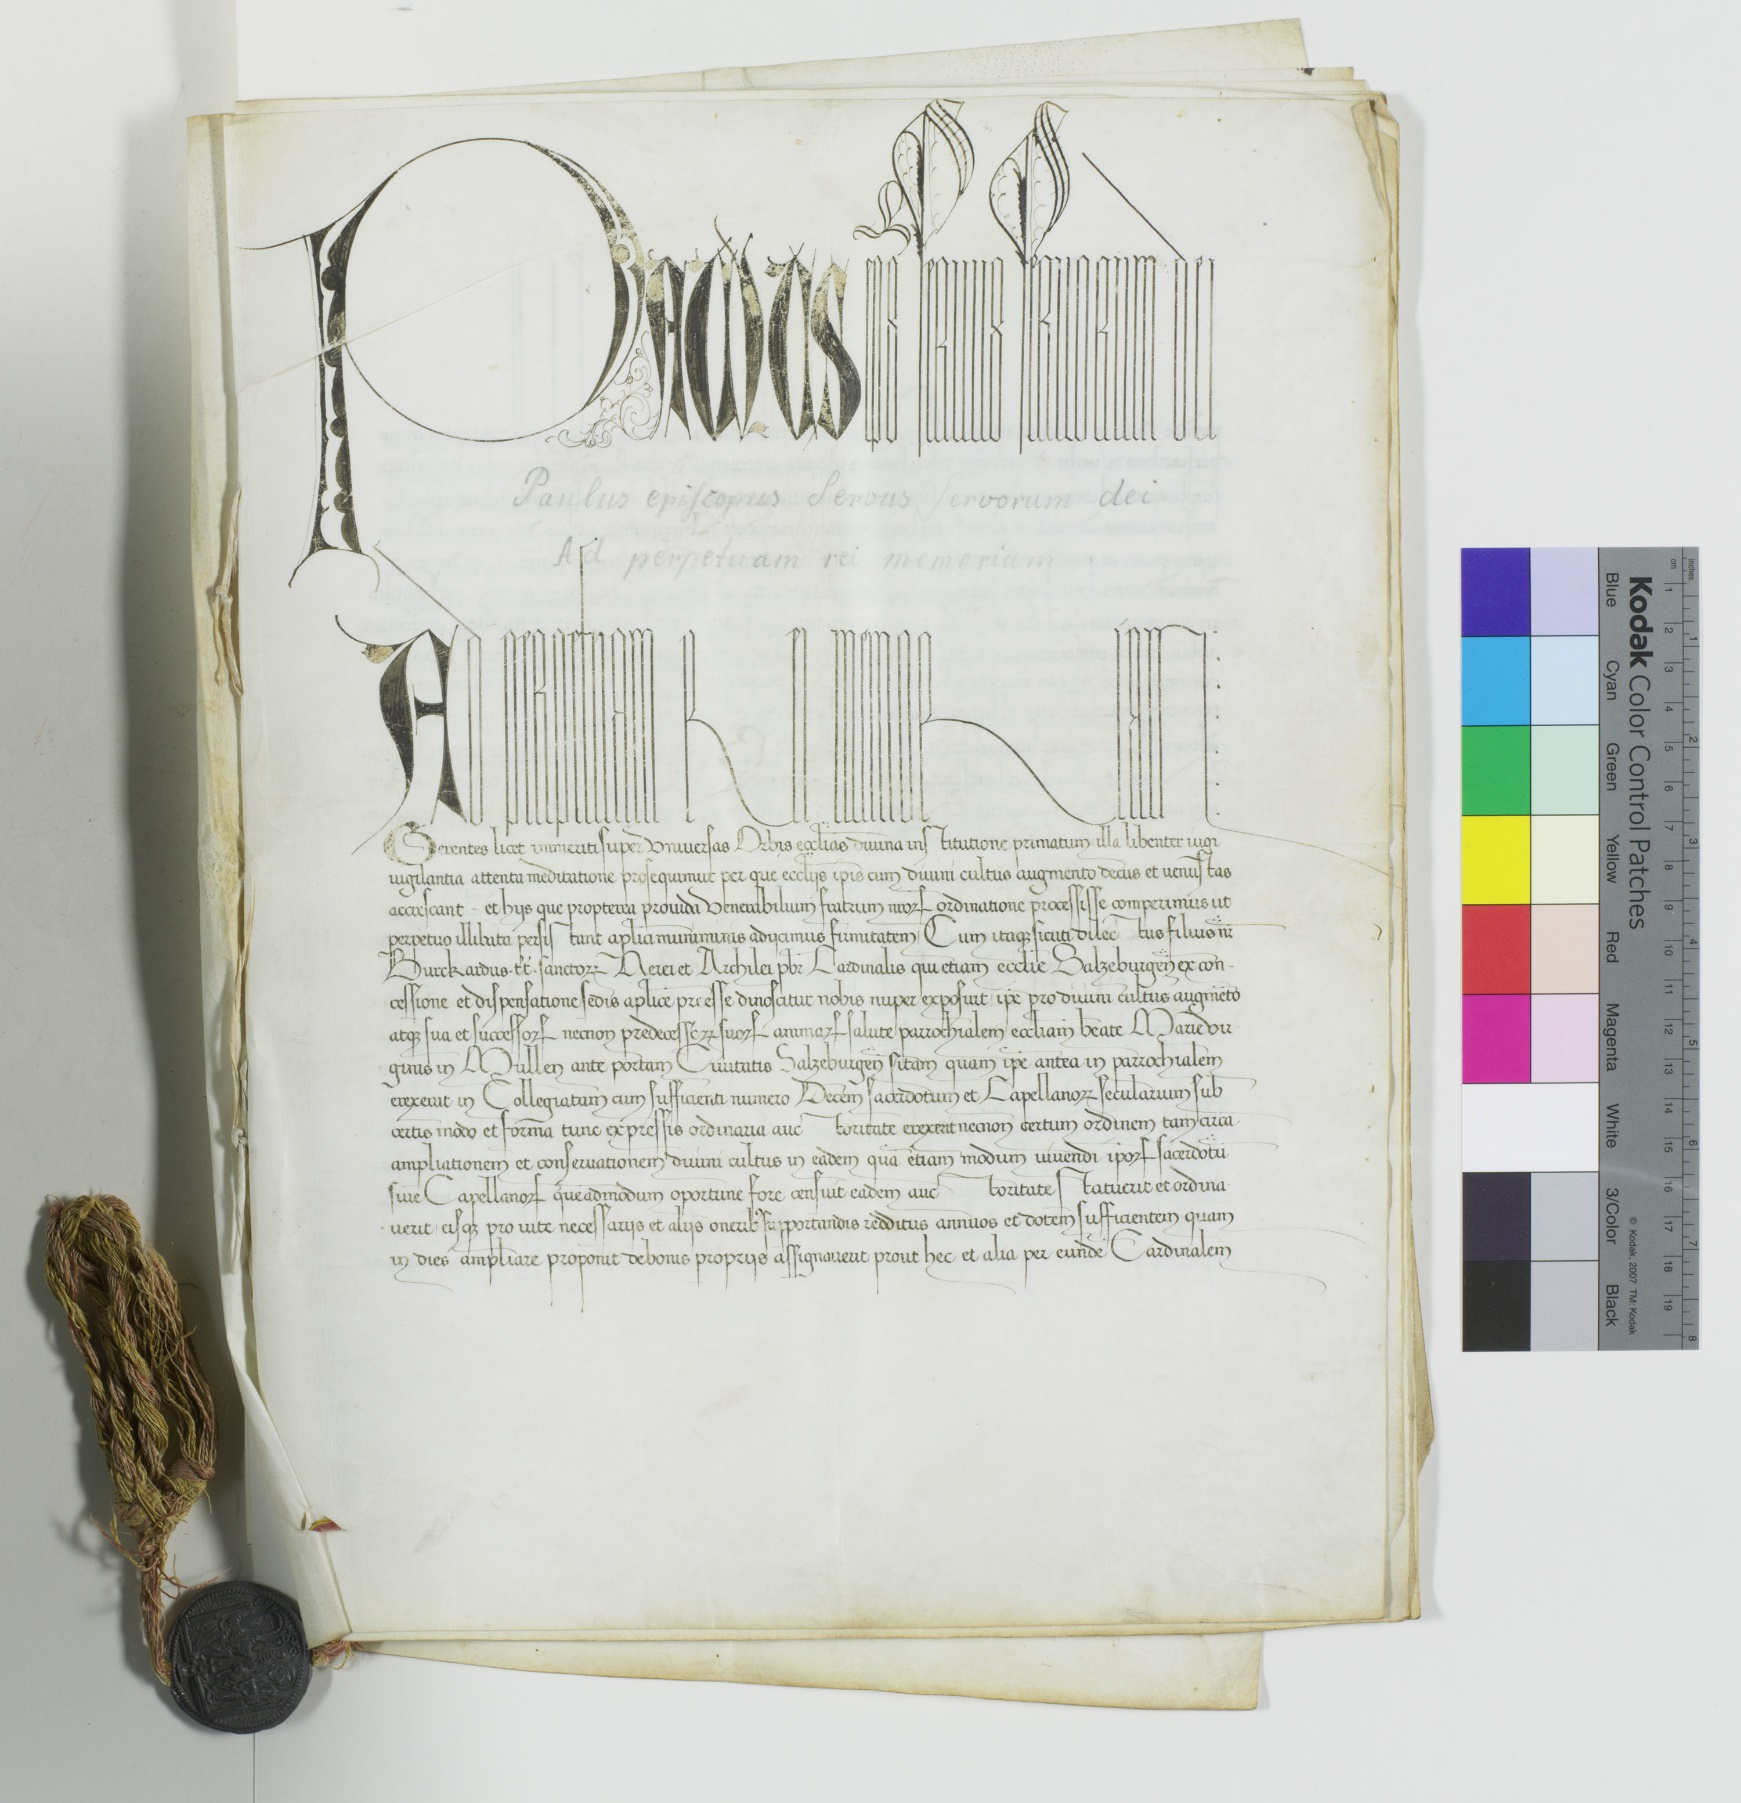 Paulus eps seruus seruorum dei
Paulus episcopus Servus servorum dei
Ad perpetuam rei memoriam
Ad perpetuam rei memoriam:
Gerentes licet immeriti super Vniuersas Orbis ecclias diuina institutione primatum illa libenter iugi
uigilantia attenta meditatione prosequimur per que ecclijs ipis cum diuini cultus augmento decus et uenustas
accrescant et hijs que propterea prouida Venerabilium fratrum nrorꝭ ordinatione processisse comperimus ut
perpetuo illibata persistant aplici muniminis adijcimus firmitatem Cum itaqꝫ sicuti dilectus filius nr̄
Burckardus tt sanctorꝝ Nerei et Archilei pbr Cardinalis qui etiam ecclie Salzeburgeñ ex con-
cessione et dispensatione sedis aplice preesse dinoscitur nobis nuper exposuit ipe pro diuini cultus augmēto
atqꝫ sua et successorꝭ necnon predecessorꝝ suorꝭ animarꝭ salute parrochialem eccliam beate Marie vir
ginis in Mullen ante portam Ciuitatis Salzeburgeñ sitam quam ipe antea in parrochialem
erexerit in Collegiatam cum sufficienti numero Decem sacerdotum et Capellanorꝝ secularium sub
certis modo et forma tunc expressis ordinaria auctoritate erexerit necnon certum ordinem tam circa
ampliationem et conseruationem diuini cultus in eadem qua etiam modum uiuendi iporꝭ sacerdotū
siue Capellanorꝭ queadmodum oportune fore censuit eadem auctoritate statuerit et ordina-
uerit eisqꝫ pro uite necessarijs et alijs oneribꝰ supportandis redditus annuos et dotem sufficientem quam
in dies ampliare proponit de bonis proprijs assignauerit prout hec et alia per eundē Cardinalem
Kodak Color Control Patches
Blue Cyan Green Yellow Red Magenta White 3/Color Black
© Kodak, 2007 TM: Kodak
inches 1 2 3 4 5 6 7 8
cm 1 2 3 4 5 6 7 8 9 10 11 12 13 14 15 16 17 18 19